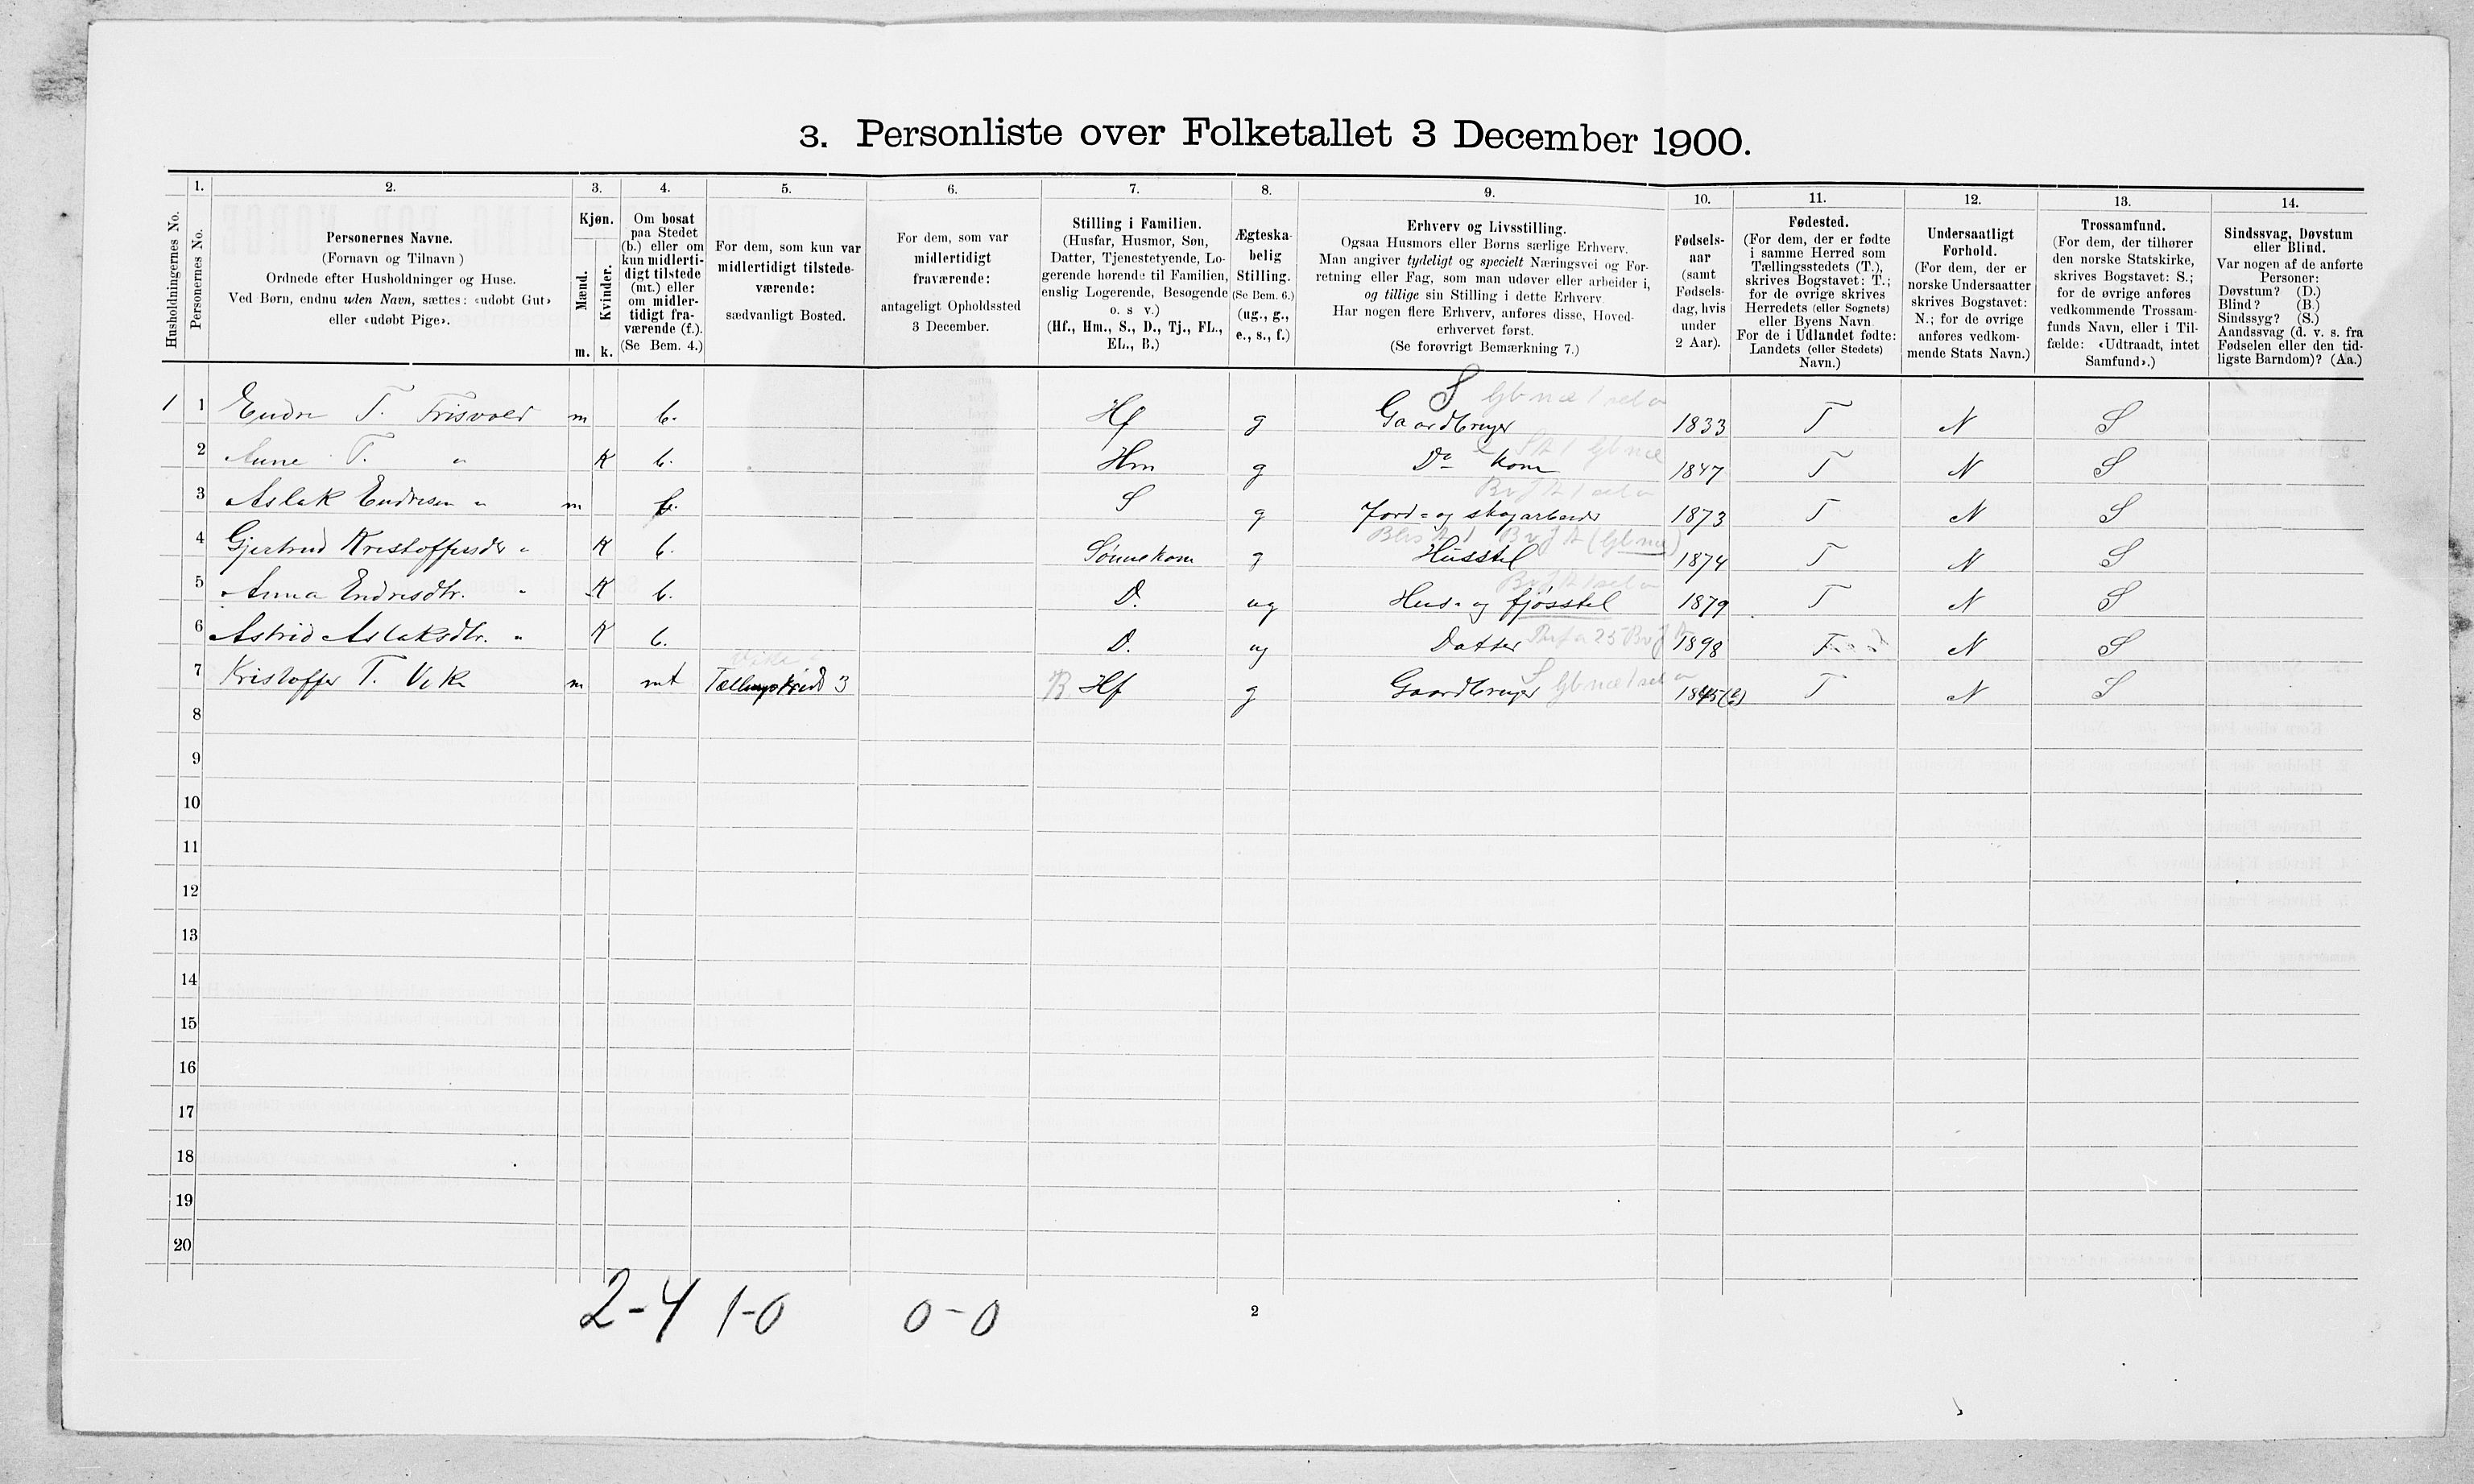 3. Personliste over Folketallet 3 December 1900.
1. 2. 3. 4. 5. 6. 7. 8. 9. 10. 11. 12. 13. 14.
Husholdningernes No.
Personernes No.
Personernes Navne.
(Fornavn og Tilnavn)
Ordnede efter Husholdninger og Huse.
Ved Børn, endnu uden Navn, sættes: «udøbt Gut»
eller «udøbt Pige».
Kjøn.
Mænd.
Kvinder.
m. k.
Om bosat
paa Stedet
(b.) eller om
kun midlerti-
digt tilstede
(mt.) eller
om midler-
tidigt fra-
værende (f.).
(Se Bem. 4.)
For dem, som kun var
midlertidigt tilstede-
værende:
sædvanligt Bosted.
For dem, som var
midlertidigt
fraværende:
antageligt Opholdssted
3 December.
Stilling i Familien.
(Husfar, Husmor, Søn,
Datter, Tjenestetyende, Lo-
gerende hørende til Familien,
enslig Logerende, Besøgende
o. s v.)
(Hf., Hm., S., D., Tj., FL.,
EL., B.)
Ægteska-
belig
Stilling.
(Se Bem. 6.)
(ug., g.,
e., s., f.)
Erhverv og Livsstilling.
Ogsaa Husmors eller Børns særlige Erhverv.
Man angiver tydeligt og specielt Næringsvei og For-
retning eller Fag, som man udøver eller arbeider i,
og tillige sin Stilling i dette Erhverv.
Har nogen flere Erhverv, anføres disse, Hoved-
erhvervet først.
(Se forøvrigt Bemærkning 7.)
Fødsels-
aar
(samt
Fødsels-
dag, hvis
under
2 Aar).
Fødested.
(For dem, der er fødte
i samme Herred som
Tællingsstedets (T.),
skrives Bogstavet: T.;
for de øvrige skrives
Herredets (eller Sognets)
eller Byens Navn.
For de i Udlandet fødte:
Landets (eller Stedets)
Navn.)
Undersaatligt
Forhold.
(For dem, der er
norske Undersaatter
skrives Bogstavet:
N.; for de øvrige
anføres vedkom-
mende Stats Navn.)
Trossamfund.
(For dem, der tilhører
den norske Statskirke,
skrives Bogstavet: S.;
for de øvrige anføres
vedkommende Trossam-
funds Navn, eller i Til-
fælde: «Udtraadt, intet
Samfund».)
Sindssvag, Døvstum
eller Blind.
Var nogen af de anførte
Personer:
Døvstum? (D.)
Blind? (B.)
Sindssyg? (S.)
Aandssvag (d. v. s. fra
Fødselen eller den tid-
ligste Barndom)? (Aa.)
1 1 Endre T. Frisvold m b. Hf g S Gaardbruger 1833 T N S
2 Anne T. " K b. Hm g Do Kone 1847 T N S
3 Aslak Endresen " m b. S g Jord- og skogarbeide 1873 T N S
4 Gjertrud Kristoffersdr " K b. Sønnekone g Husstel 1874 T N S
5 Anna Endresdtr. " K b. D. ug Hus- og fjøsstel 1879 T N S
6 Astrid Aslaksdtr. " K b. D. ug Datter 1898 N S
7 Kristoffer T. Vike m mt Tællingskreds 3 B Hf g Gaardbruger 1845 T N S
8
9
10
11
12
13
14
15
16
17
18
19
20
2-4 1-0 0-0
2